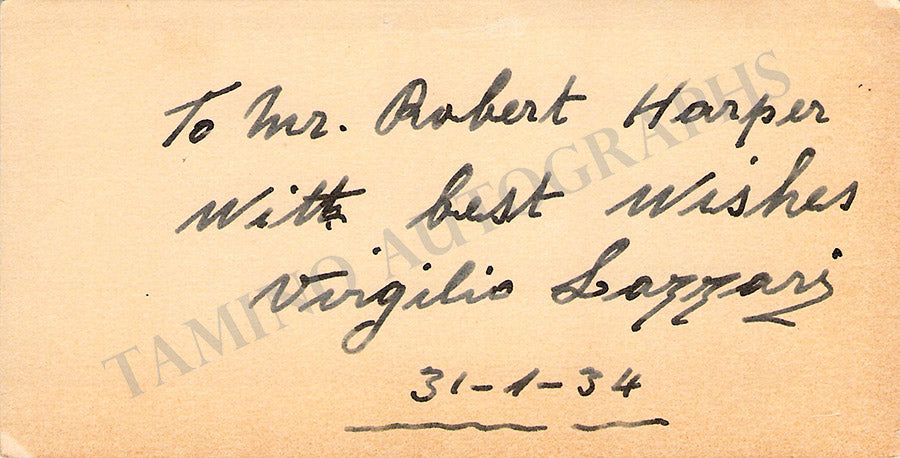 To Mr. Robert Harper
With best Wishes
Virgilio Lazzari
31-1-34
TAMINO AUTOGRAPHS